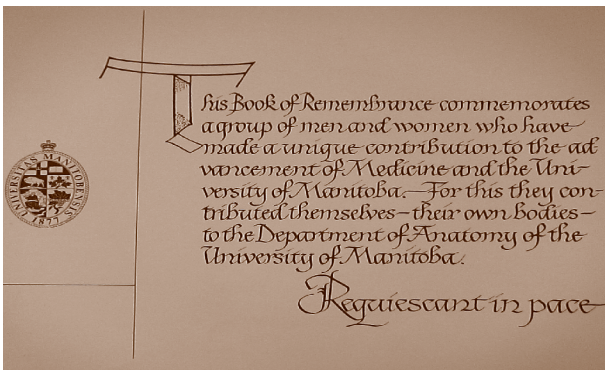 UNIVERSITAS MANITOBENSIS
1877
This Book of Remembrance commemorates
a group of men and women who have
made a unique contribution to the ad
vancement of Medicine and the Uni-
versity of Manitoba.—For this they con-
tributed themselves—their own bodies—
to the Department of Anatomy of the
University of Manitoba.
Requiescant in pace